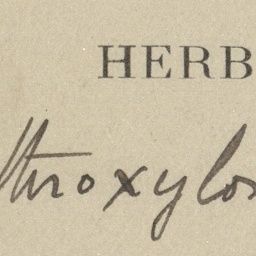 HERB
throxylo